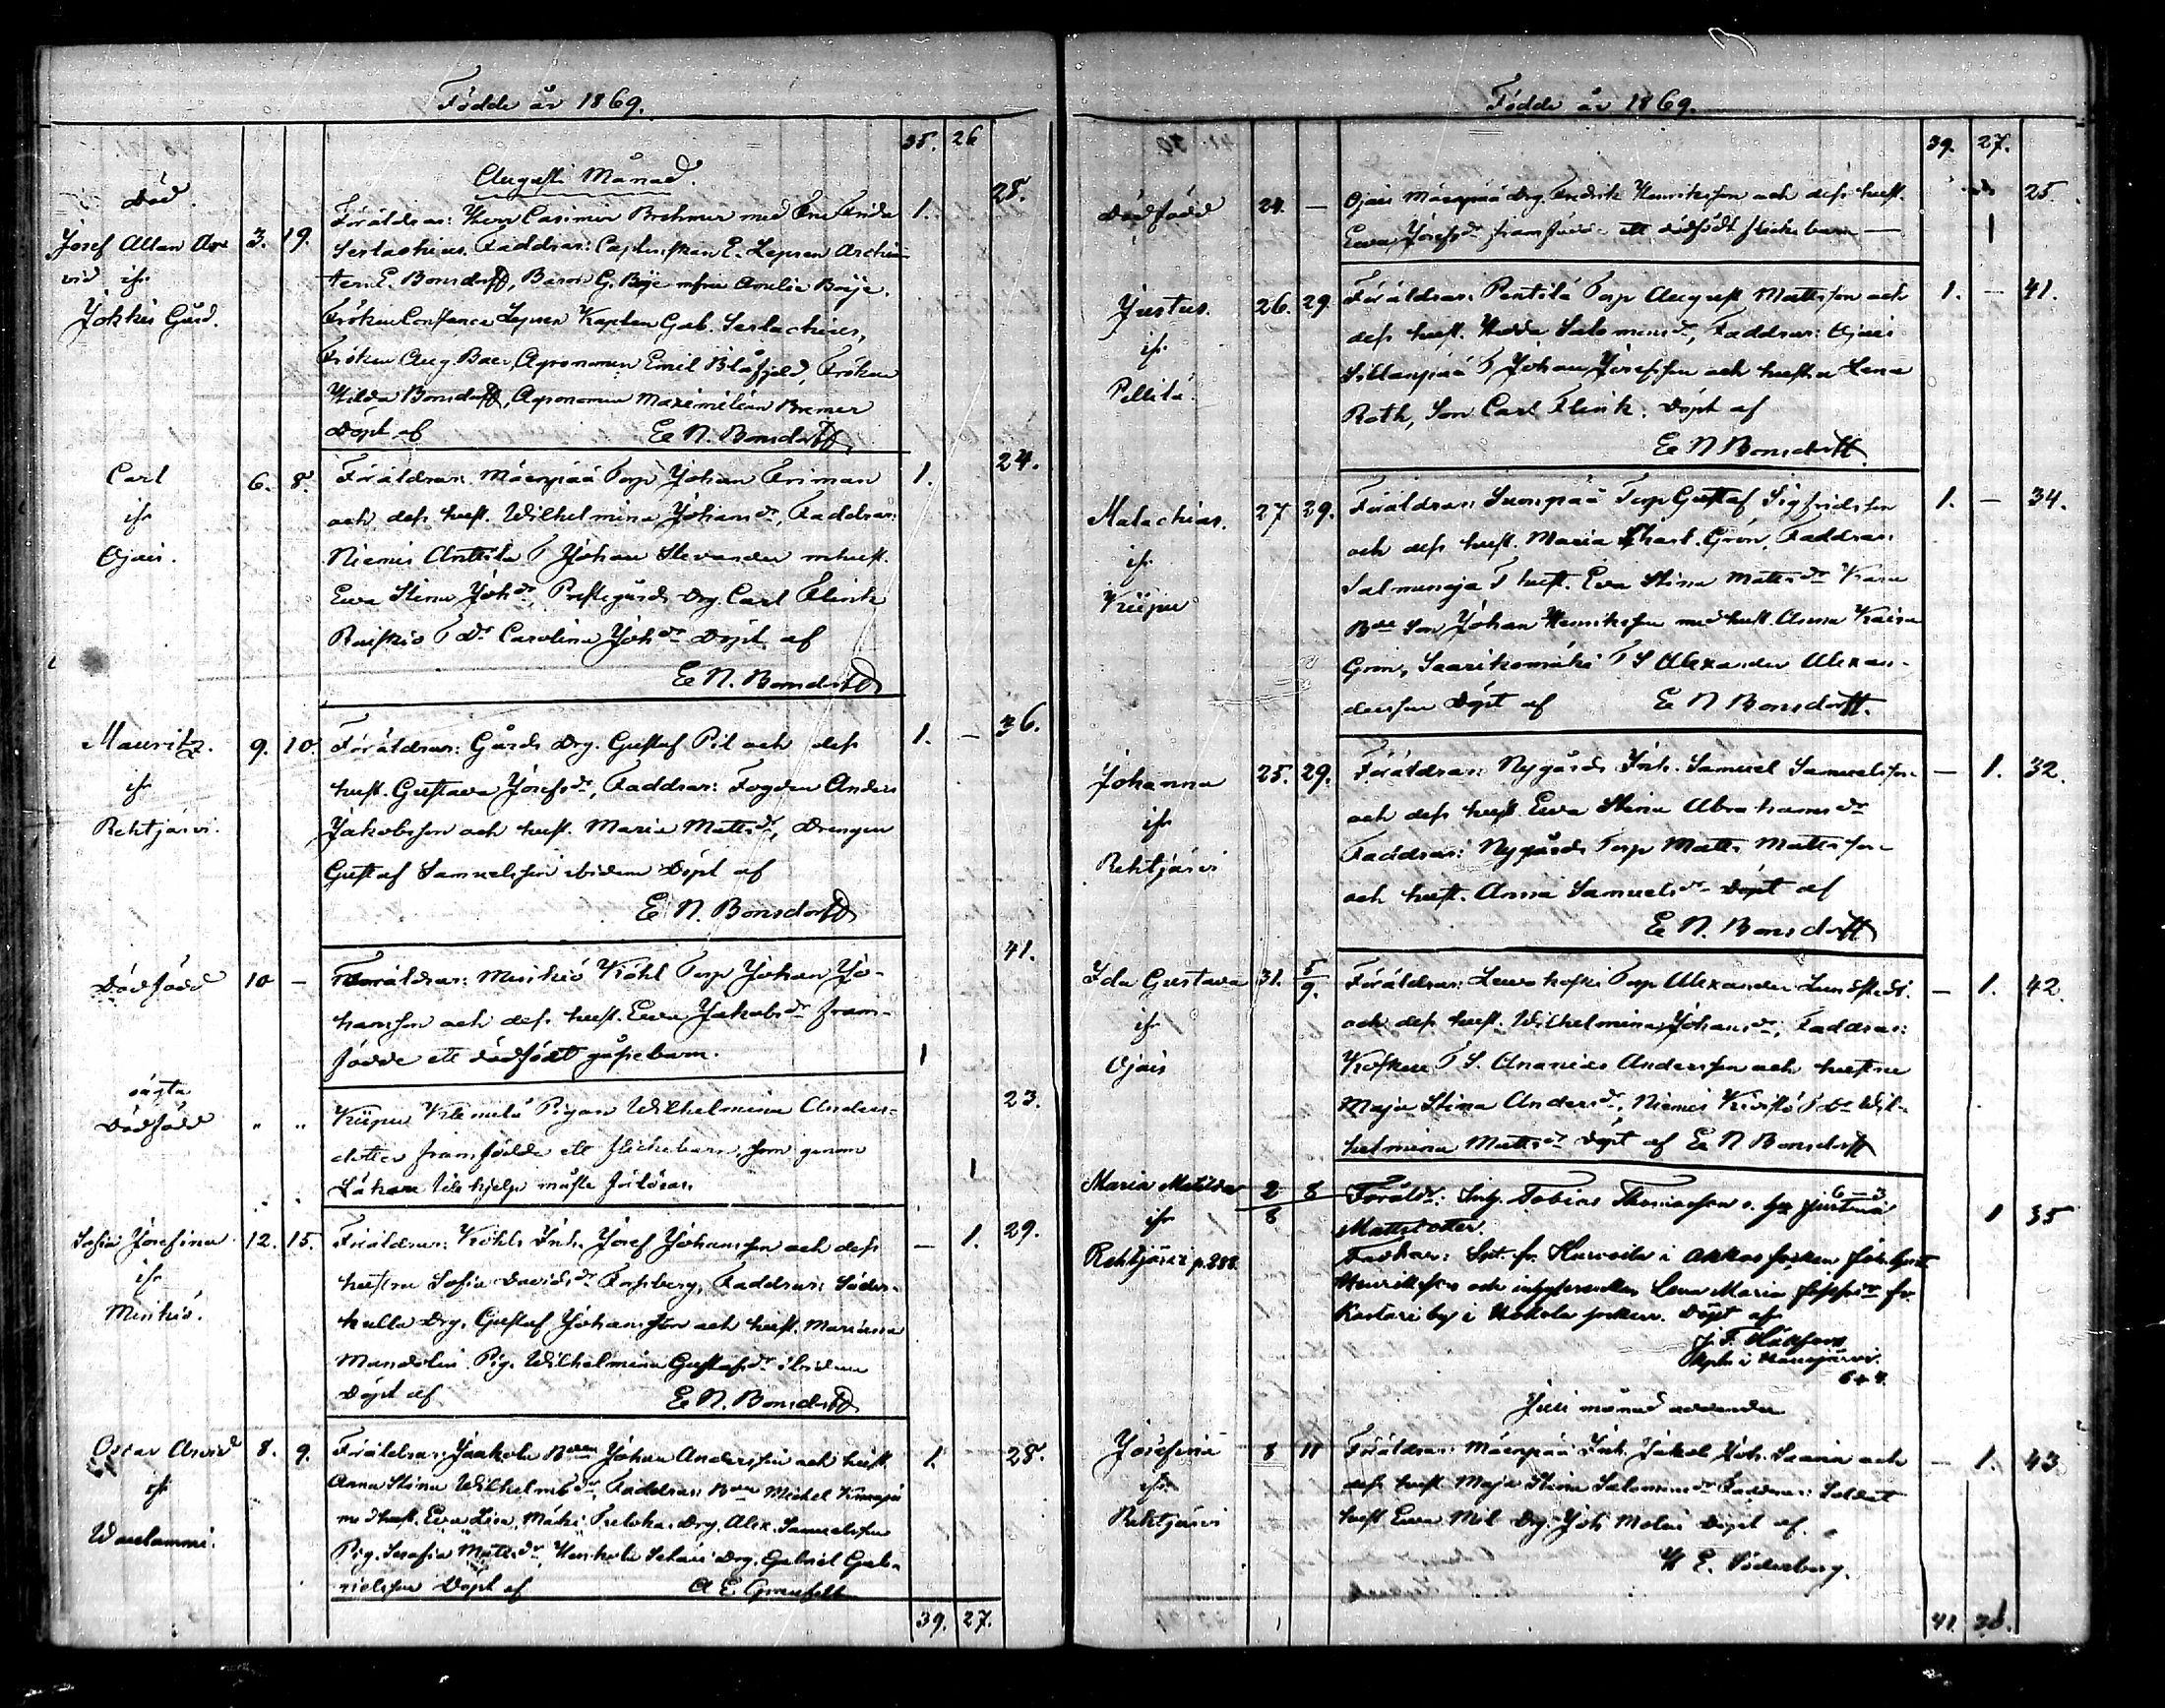 Födde år 1869.
35. 26
Augusti Månad.
Död.
Josef Allan Ar-
vid ifr.
Jokkis Gård.
3. 19.
Föräldrar: Herr Casimir Brehmer med Fru Frida
Serlachius. Faddrar: Capt.
E. Bonsdorff, Baron G. Boije m fru Amelie Boije.
Fröken Constance Kapten Gab. Serlachius,
Fröken Aug. Baer, Agronomen Emil Blåfjeld, Fröken
Hilda Bonsdorff, Agronomen Maximilian Bremer
Döpt af E. N. Bonsdorff
1. 28.
Carl
ifr
Ojais.
6. 8.
Föräldrar: Mäenpää Torp Johan Friman
och dess hust. Wilhelmina Johansdr, Faddrar:
Niemis Anttila T Johan Stevander m hust.
Ewa Stina Johdr, Prestgårds Drg. Carl Flink
T Dr Carolina Johdr Döpt af
E. N. Bonsdorff
1. 24.
Mauritz.
ifr
Rehtjärvi.
9. 10.
Föräldrar: Gårds Drg. Gustaf Pil och dess
hust. Gustava Josefsdr, Faddrar: Fogden Anders
Jakobsson och hust. Maria Mattsdr, Drengen
Gustaf Samuelsson ibidem Döpt af
E. N. Bonsdorff
1. – 36.
Dödfödd
10 –
Föräldrar: Minkiö Köhl Torp Johan Jo-
hansson och dess hust. Ewa Jakobsdr fram-
födde ett dödfödt gossebarn.
1 41.
oägta
Dödfödd
" "
Kiipu Klemelä Pigan Wilhelmina Anders-
dotter framfödde ett flickebarn, som genom
Läkare hjelp måste förlösas.
1 23.
Sofia Josefina
ifr
Minkiö.
12. 15.
Föräldrar: Köhls Inh. Josef Johansson och dess
hustru Sofia Davidsdr Forsberg, Faddrar: Söder-
kulla Drg. Gustaf Johansson och hust. Mariana
Mandolin Pig. Wilhelmina Gustafsdr ibidem
Döpt af E. N. Bonsdorff
– 1. 29.
Oscar Arvid
ifr
Waulammi.
8. 9.
Föräldrar: Jaakola Bon Johan Andersson och hust.
Anna Stina Wilhelmsdr, Faddrar: Bon Michel
med hust. Ewa Lisa, Mäki Drg. Alex. Samuelsson
Pig. Serafia Mattsdr, Drg. Gabriel Gab-
rielsson Döpt af A E. Granfelt
1. 28.
39. 27.
Födde år 1869.
39. 27.
Dödfödd
24. –
Ojais Mäenpää Drg. Fredrik Henriksson och dess hust.
Ewa Josefsdr framfödde ett dödfödt flickebarn —
1 25.
Justus.
ifr
Pellilä.
26. 29.
Föräldrar: Pentilä Torp August Mattsson och
dess hust. Hedda Salomonsdr, Faddrar: Ojais
Sillanpää T Johan Josefsson och hustru Lena
Roth, Son Carl Flink. Döpt af
E N Bonsdorff
1. – 41.
Malachias.
ifr
Kiipu
27 29.
Föräldrar: Suonpää Torp Gustaf Sigfridsson
och dess hust. Maria Charl. Grön, Faddrar:
Salmunoja T hust. Ewa Stina Mattsdr
Son Johan Henriksson med hust. Anna Kaisa
Grön, Saarikomäki T S Alexander Alexan-
dersson Döpt af E N Bonsdorff.
1. – 34.
Johanna
ifr
Rehtjärvi
25. 29.
Föräldrar: Nygårds Inh. Samuel Samuelsson
och dess hust Ewa Stina Abrahamsdr
Faddrar: Nygårds Torp Matts Mattsson
och hust. Anna Samuelsdr Döpt af
E N. Bonsdorff
– 1. 32.
Ida Gustava
ifr
Ojais
31. 5/9.
Föräldrar: Torp Alexander Lundstedt.
och dess hust. Wilhelmina Johansdr, Faddrar:
T. S. Ananias Andersson och hustru
Maja Stina Andersdr, Niemis Kivistö T Dr Wil-
helmina Mattsdr Döpt af E N Bonsdorff
– 1. 42.
Maria Matilda
ifr
Rehtjärvi p. 288.
2/8 8
Föräldr: Inh. Tobias Thomasson o. Justina
Mattsdotter.
Faddrar: i Akkas socken
Henriksson och Lena Maria fr.
by i Urdiala socken. Döpt af
J. F.
1 35
Juli månad addenda
Josefina
ifr
Rehtjärvi
8 11
Föräldrar: Mäenpää Inh. Jakob Joh. och
dess hust Maja Stina Salomonsdr Faddrar: Soldat
hust Ewa Mil Drg. Joh Molin Döpt af
K E. Söderberg.
– 1. 43
41. 30.